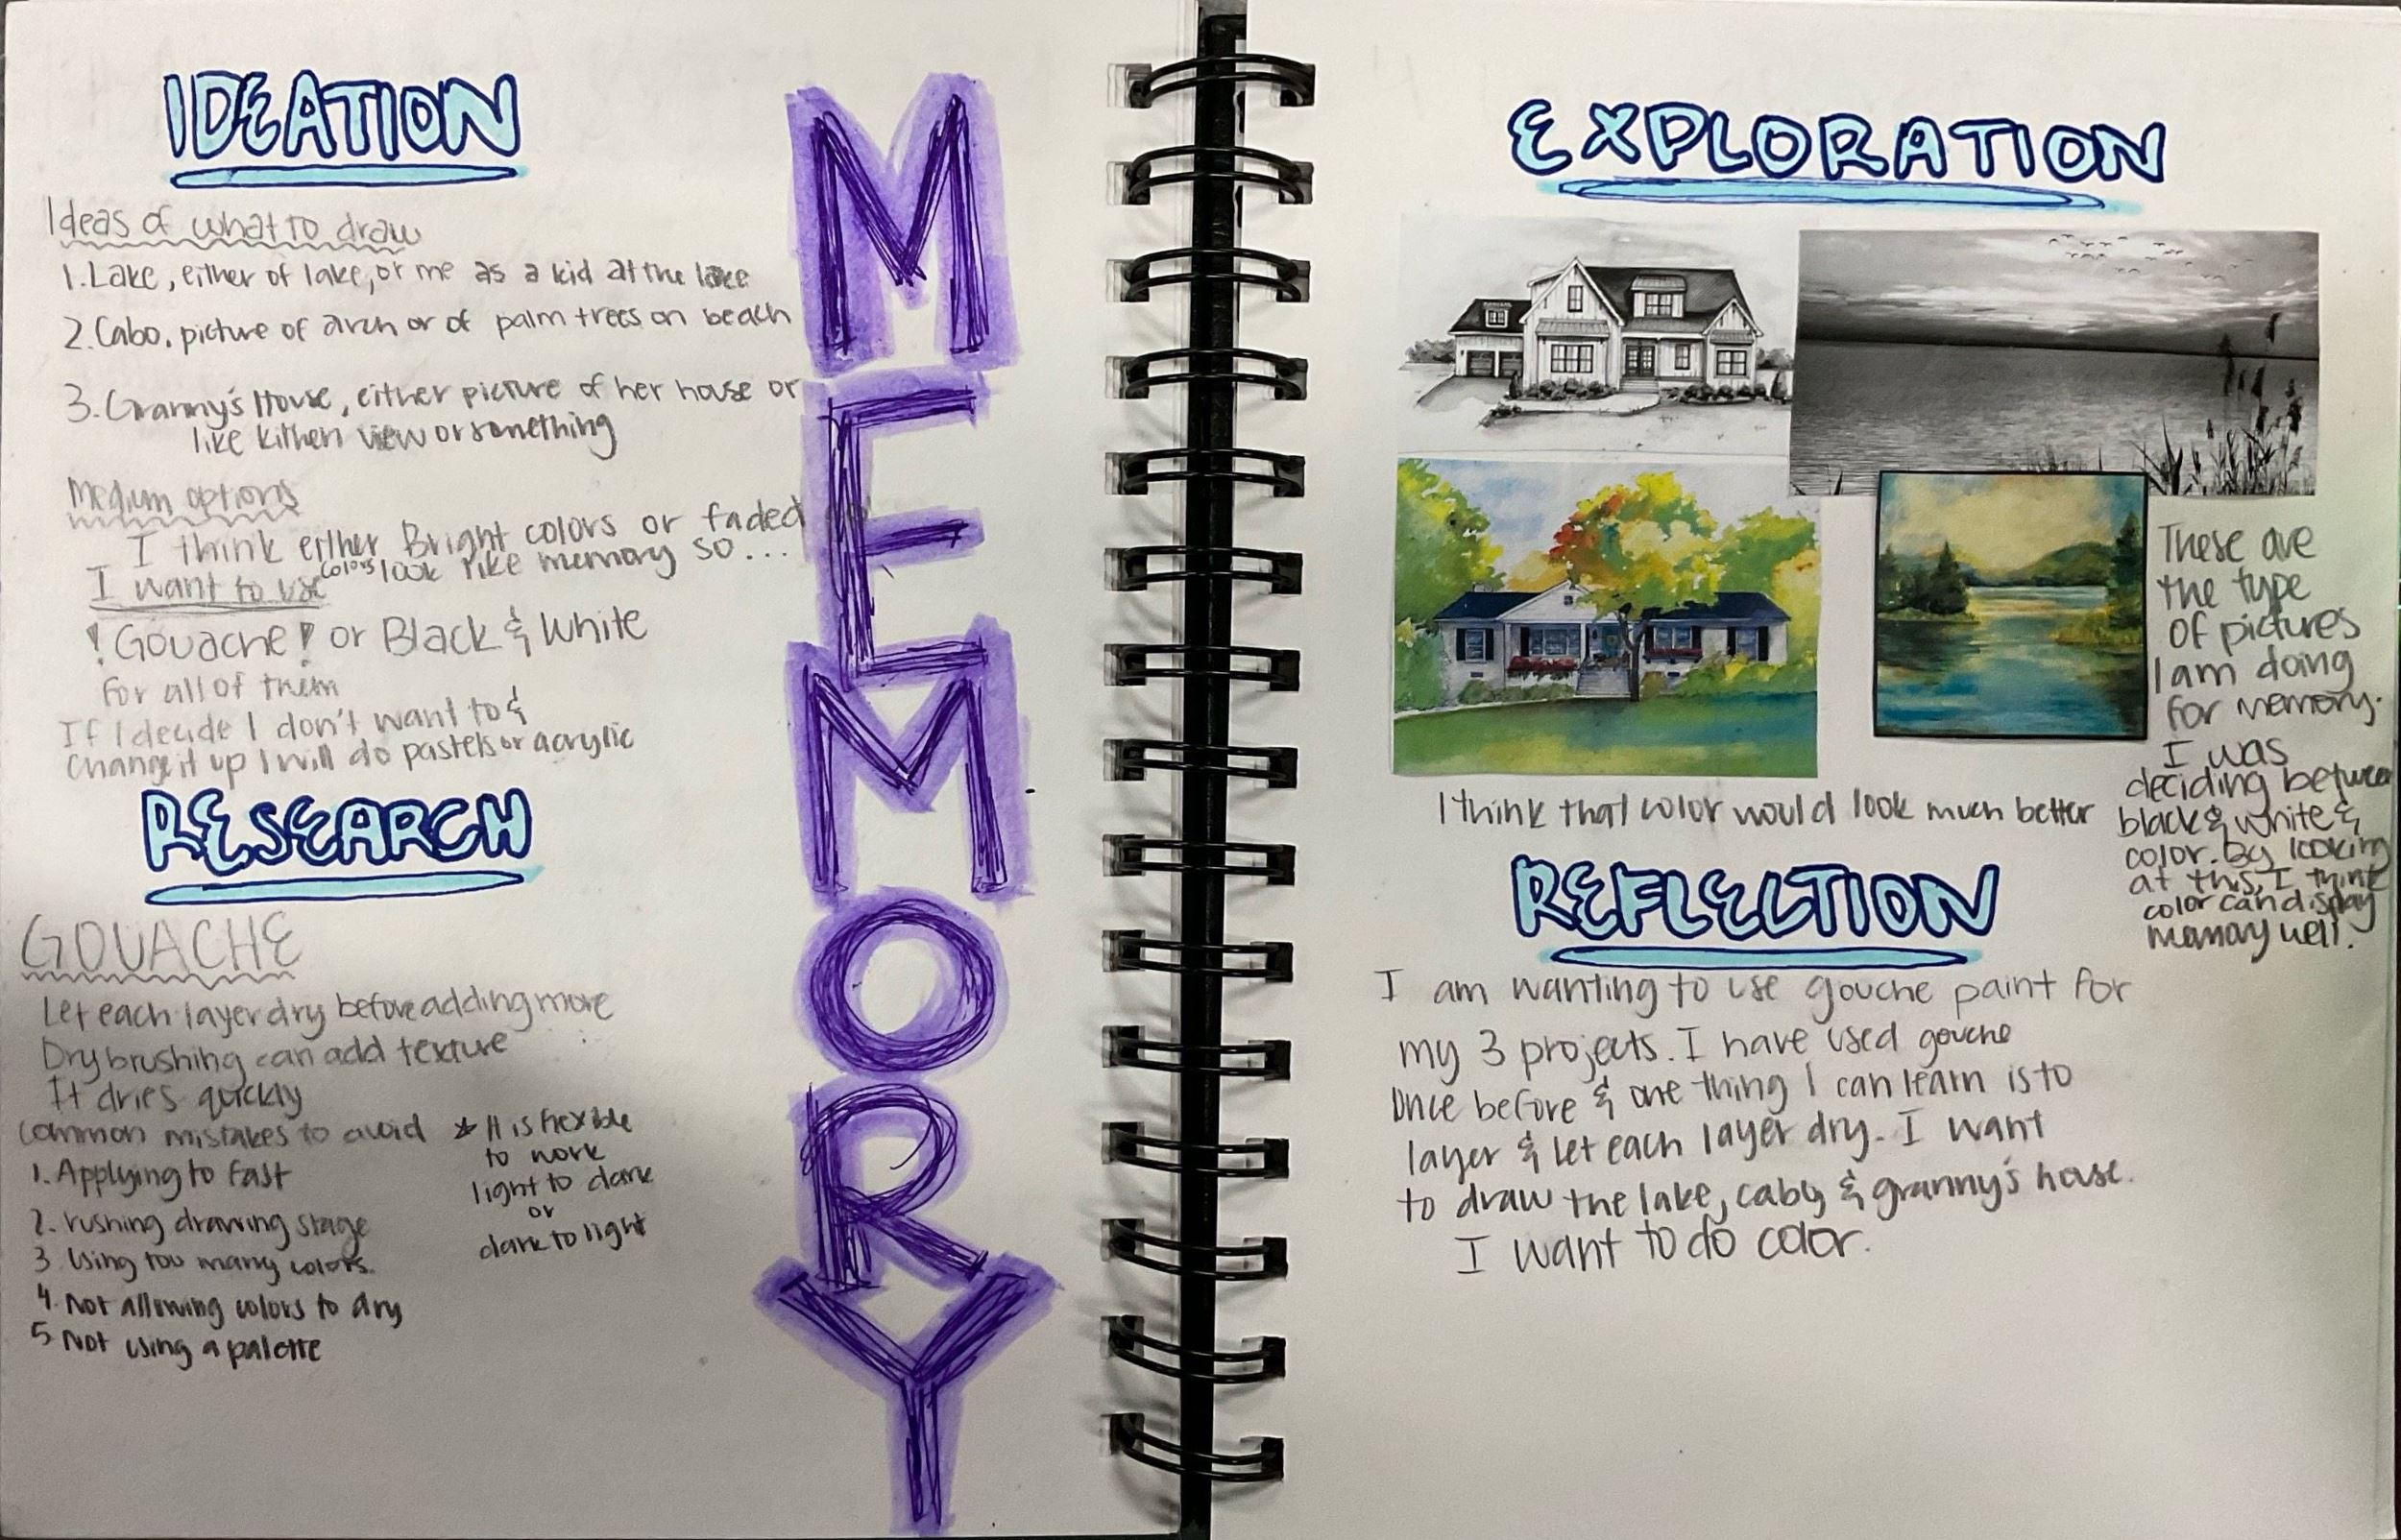 IDEATION
Ideas of what to draw
1. Lake, either of lake, or me as a kid at the lake
2. Cabo, picture of arch or of palm trees on beach
3. Granny's House, either picture of her house or
like kithen view or something
Medium options
I think either Bright colors or faded
colors look like memory so...
I want to use
! Gouache! or Black & White
for all of them
If I decide I don't want to &
Change it up I will do pastels or acrylic
RESEARCH
GOUACHE
Let each layer dry before adding more
Dry brushing can add texture
It dries quickly
Common mistakes to avoid
1. Applying to fast
2. rushing drawing stage
3 Using too many colors.
4. Not allowing colors to dry
5 Not using a palette
It is flexible
to work
light to dark
or
dark to light
MEMORY
EXPLORATION
These are
the type
of pictures
I am doing
for memory.
I was
deciding between
black & white &
color. By looking
at this, I think
color can display
memory well.
I think that color would look much better
REFLECTION
I am wanting to use gouche paint for
my 3 projects. I have used gouche
Once before & one thing I can learn is to
layer & let each layer dry. I want
to draw the lake, cabo, & granny's house.
I want to do color.